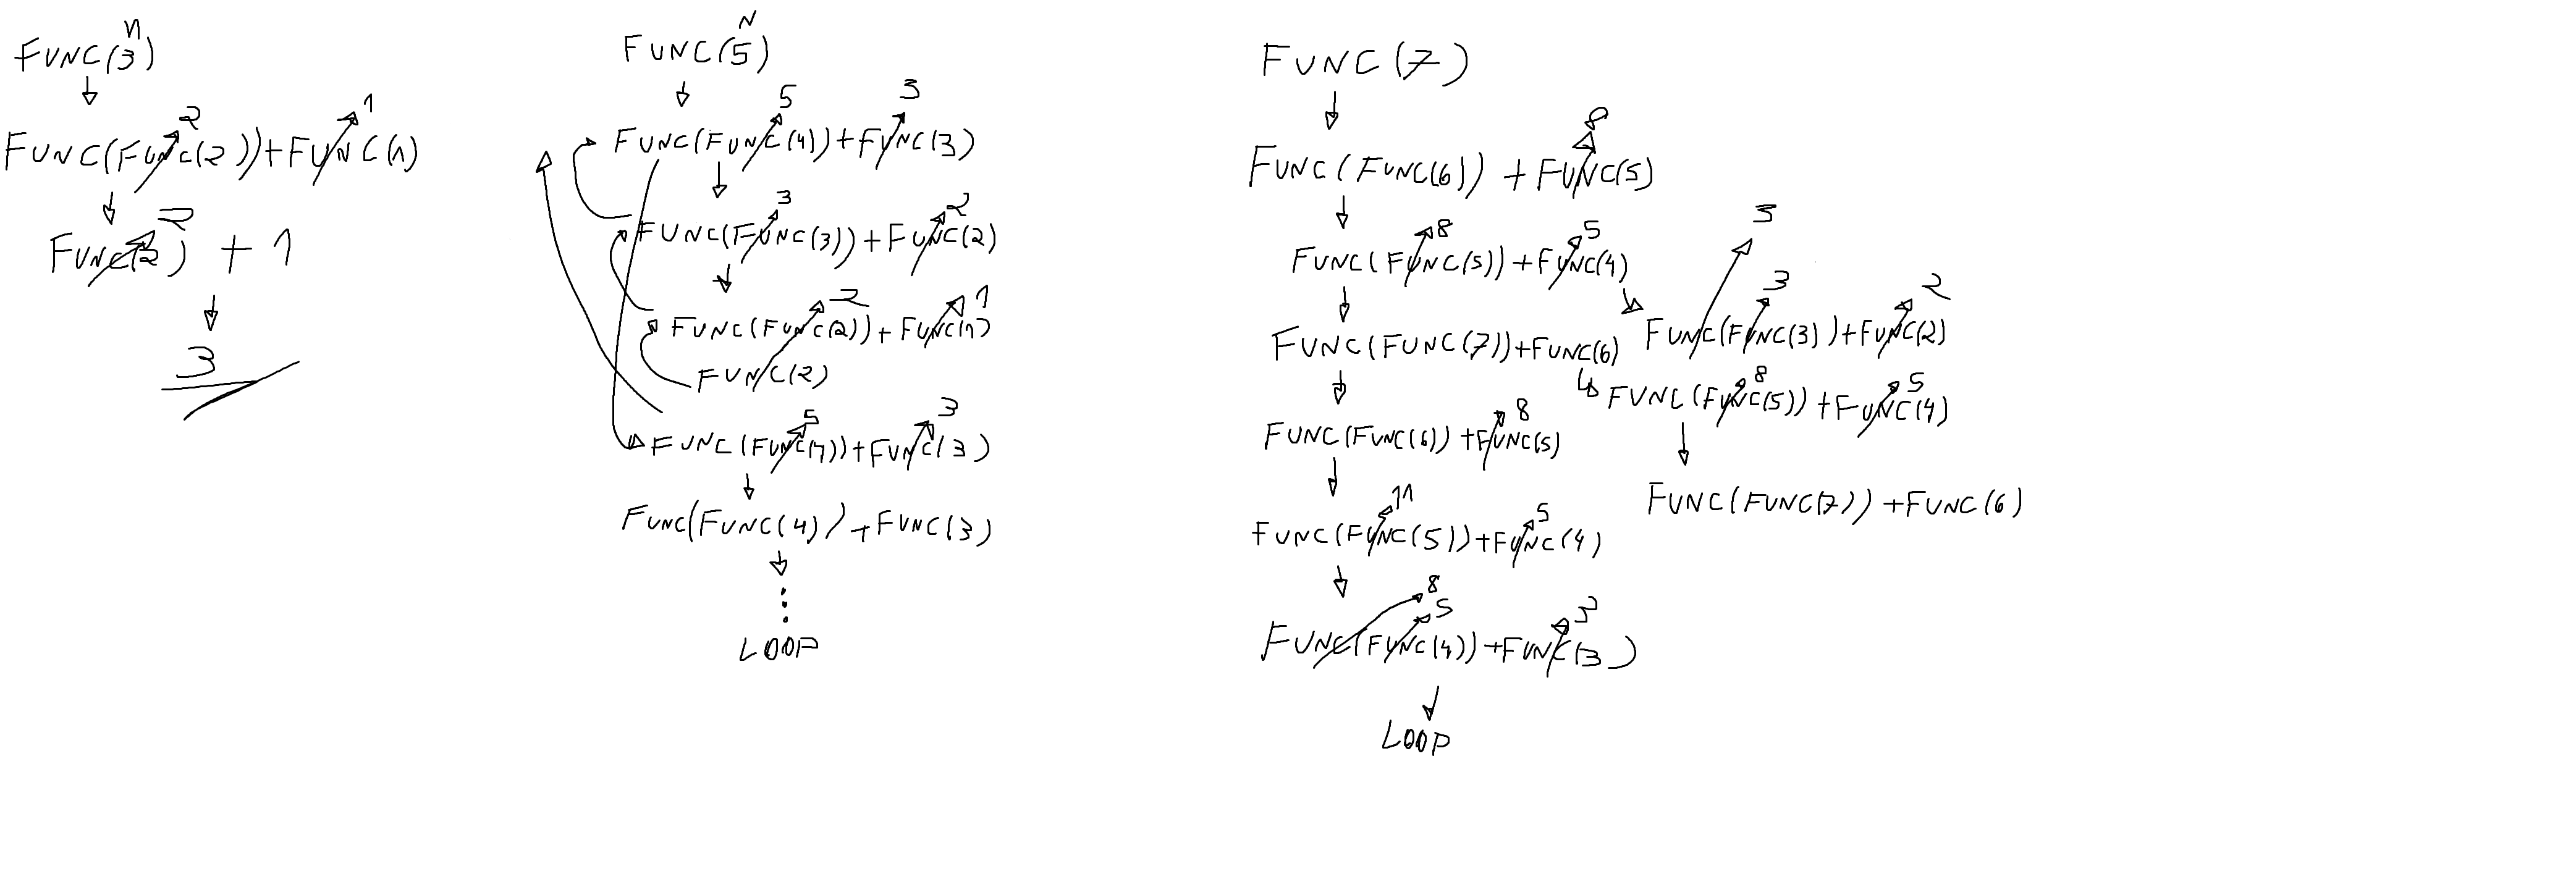 n
FUNC(3)
2 1
FUNC(FUNC(2))+FUNC(1)
2
FUNC(2) + 1
3
N
FUNC(5)
5 3
FUNC(FUNC(4))+FUNC(3)
3 2
FUNC(FUNC(3))+FUNC(2)
2 1
FUNC(FUNC(2))+FUNC(1)
FUNC(2)
5 3
FUNC(FUNC(4))+FUNC(3)
FUNC(FUNC(4))+FUNC(3)
LOOP
FUNC(7)
8
FUNC(FUNC(6))+FUNC(5)
8 5
FUNC(FUNC(5))+FUNC(4)
3 2
FUNC(FUNC(3))+FUNC(2)
FUNC(FUNC(7))+FUNC(6)
8 5
FUNC(FUNC(5))+FUNC(4)
FUNC(FUNC(7))+FUNC(6)
8
FUNC(FUNC(6))+FUNC(5)
11 5
FUNC(FUNC(5))+FUNC(4)
8
5 3
FUNC(FUNC(4))+FUNC(3)
LOOP